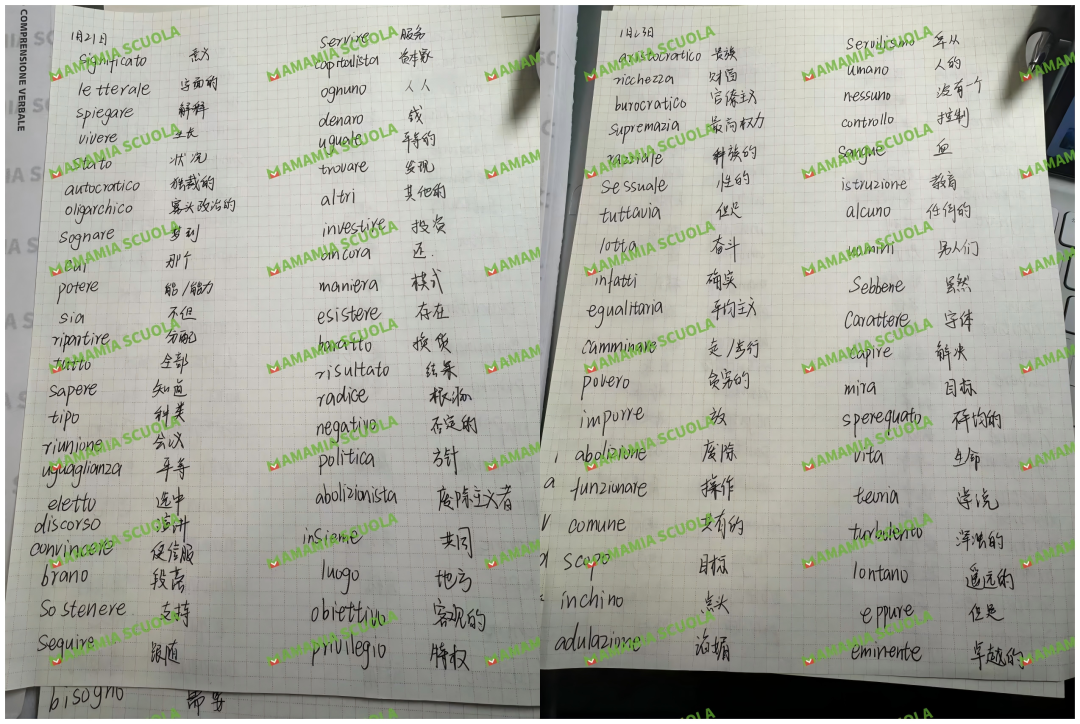 COMPRENSIONE VERBALE
1月21日
significato 意义
letterale 字面的
spiegare 解释
vivere 生长
stato 状况
autocratico 独裁的
oligarchico 寡头政治的
sognare 梦到
cui 那个
potere 能/能力
sia 不但
ripartire 分配
tutto 全部
sapere 知道
tipo 种类
riunione 会议
uguaglianza 平等
eletto 选中
discorso 演讲
convincere 使信服
brano 段落
sostenere 支持
seguire 跟随
bisogno 需要
servire 服务
capitalista 资本家
ognuno 人人
denaro 钱
uguale 平等的
trovare 发现
altri 其他的
investire 投资
ancora 还.
maniera 模式
esistere 存在
baratto 换货
risultato 结果
radice 根源
negativo 否定的
politica 方针
abolizionista 废除主义者
insieme 共同
luogo 地方
obiettivo 客观的
privilegio 特权
1月23日
aristocratico 贵族
ricchezza 财富
burocratico 官僚主义
supremazia 最高权力
razziale 种族的
sessuale 性的
tuttavia 但是
lotta 奋斗
infatti 确实
egualitaria 平均主义
camminare 走/步行
povero 贫穷的
imporre 放
abolizione 废除
funzionare 操作
comune 共有的
scopo 目标
inchino 点头
adulazione 谄媚
servilismo 卑从
umano 人的
nessuno 没有一个
controllo 控制
sangue 血
istruzione 教育
alcuno 任何的
uomini 男人们
Sebbene 虽然
carattere 字体
capire 解决
mira 目标
sperequato 不平均的
vita 生命
teoria 学说
turbolento 浑浊的
lontano 遥远的
eppure 但是
eminente 卓越的
MAMAMIA SCUOLA